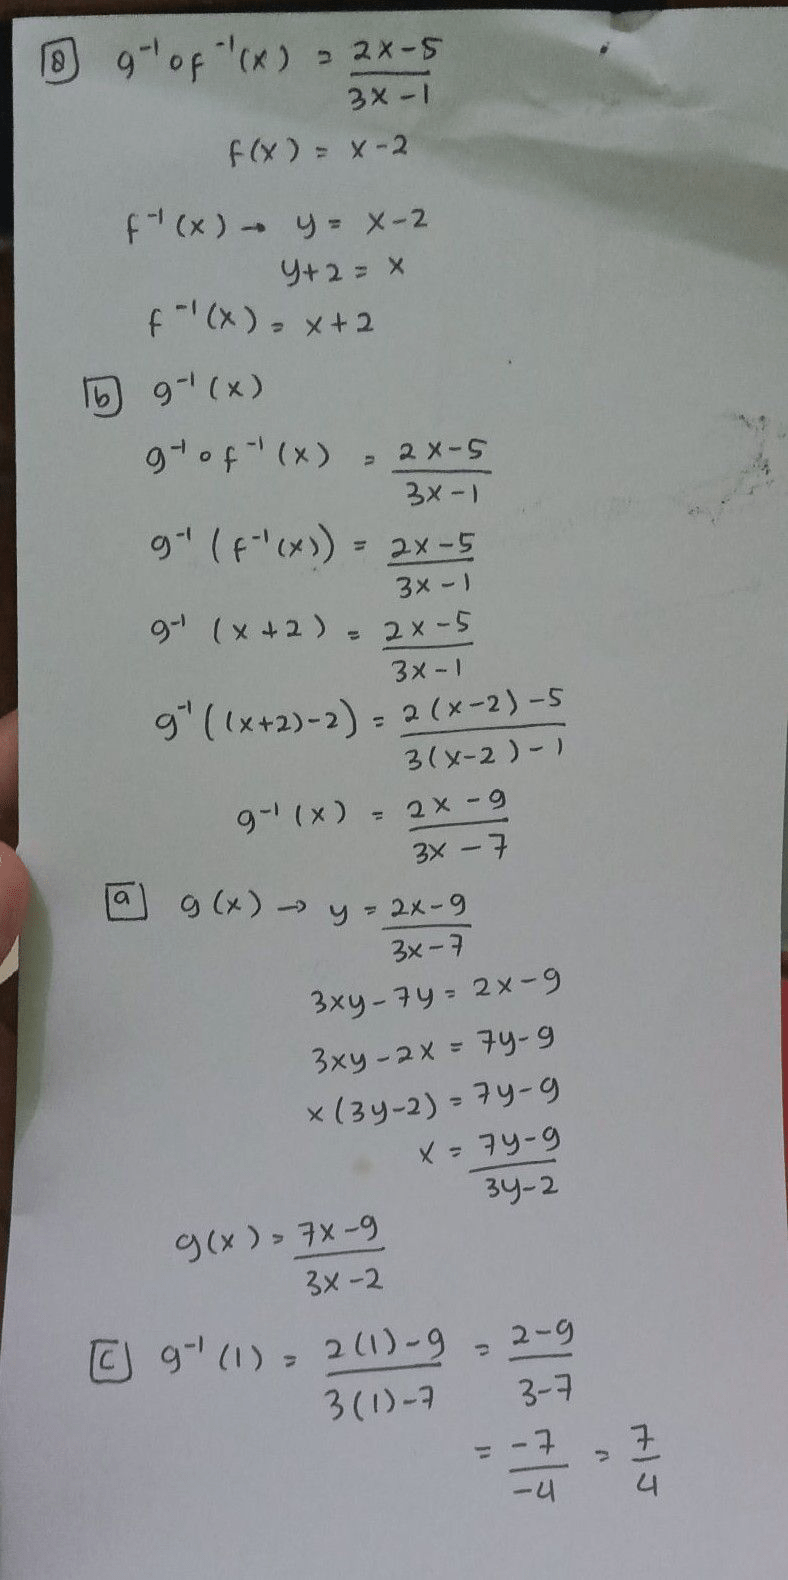 8 g⁻¹ o f⁻¹(x) = (2x-5)/(3x-1)
f(x) = x-2
f⁻¹(x) → y = x-2
y+2 = x
f⁻¹(x) = x+2
b g⁻¹(x)
g⁻¹ o f⁻¹(x) = (2x-5)/(3x-1)
g⁻¹(f⁻¹(x)) = (2x-5)/(3x-1)
g⁻¹(x+2) = (2x-5)/(3x-1)
g⁻¹((x+2)-2) = (2(x-2)-5)/(3(x-2)-1)
g⁻¹(x) = (2x-9)/(3x-7)
a g(x) → y = (2x-9)/(3x-7)
3xy-7y = 2x-9
3xy-2x = 7y-9
x(3y-2) = 7y-9
x = (7y-9)/(3y-2)
g(x) = (7x-9)/(3x-2)
c g⁻¹(1) = (2(1)-9)/(3(1)-7) = (2-9)/(3-7)
= (-7)/(-4) = 7/4